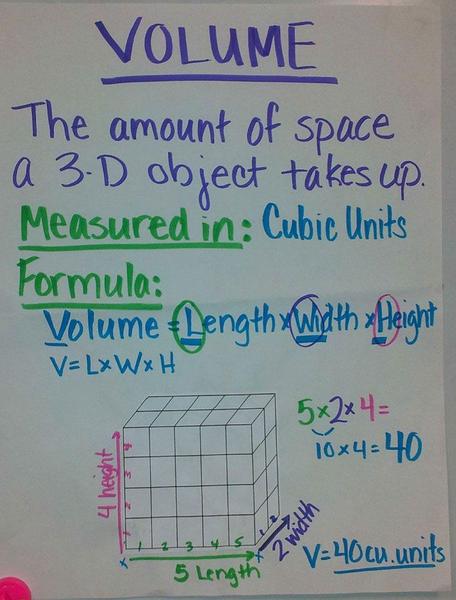 VOLUME
The amount of space
a 3-D object takes up.
Measured in: Cubic Units
Formula:
Volume = Length x Width x Height
V = L x W x H
5x2x4=
10x4=40
4 height
4
3
2
1
1 2 3 4 5
1 2
5 Length
2 width
V=40cu.units